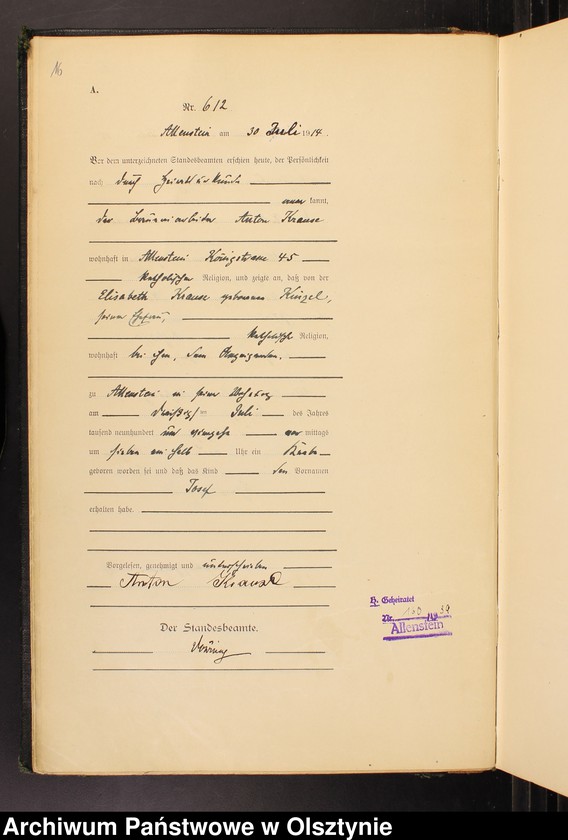 16
A.
Nr. 612
Allenstein am 30 Juli 1914.
Vor dem unterzeichneten Standesbeamten erschien heute, der Persönlichkeit
nach durch Heiratsurkunde
anerkannt,
der Brauereiarbeiter Anton Krause
wohnhaft in Allenstein Königstrasse 45
katholischer Religion, und zeigte an, daß von der
Elisabeth Krause geborenen Kinzel,
seiner Ehefrau,
katholischer Religion,
wohnhaft bei ihm, dem Anzeigenden,
zu Allenstein in seiner Wohnung
am dreißigsten Juli des Jahres
tausend neunhundert und vierzehn vormittags
um sieben ein halb Uhr ein Knabe
geboren worden sei und daß das Kind den Vornamen
Josef
erhalten habe.
Vorgelesen, genehmigt und unterschrieben
Anton Krause
Der Standesbeamte.
H. Geheiratet
Nr. 39
Allenstein
Archiwum Państwowe w Olsztynie